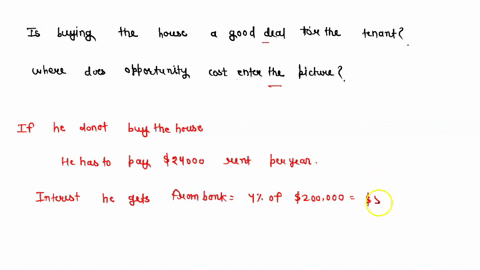 Is buying the house a good deal for the tenant?
where does opportunity cost enter the picture?
If he donot buy the house
He has to pay $24000 rent per year.
Interest he gets from bank = 4% of $200,000 = $